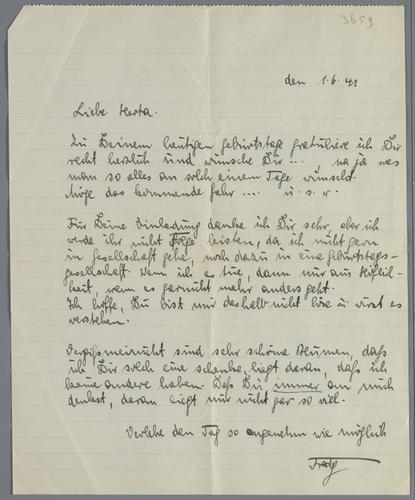 3659
den 1.6.41
Liebe Herta.
Zu Deinem heutigen Geburtstage gratuliere ich Dir
recht herzlich und wünsche Dir ..., na ja was
man so alles an solch einem Tage wünscht.
Möge das kommende Jahr .... u. s. w.
Für Deine Einladung danke ich Dir sehr, aber ich
werde ihr nicht Folge leisten, da ich nicht gern
in Gesellschaft gehe, noch dazu in eine Geburtstags-
gesellschaft. Wenn ich es tue, dann nur aus Höflich-
keit, wenn es garnicht mehr anders geht.
Ich hoffe, Du bist mir deshalb nicht böse u. wirst es
verstehen.
Vergißmeinnicht sind sehr schöne Blumen, daß
ich Dir solch eine schenke, liegt daran, daß ich
keine andere haben. Daß Du immer an mich
denkst, daran liegt mir nicht gar so viel.
Verlebe den Tag so angenehm wie möglich
Fredy